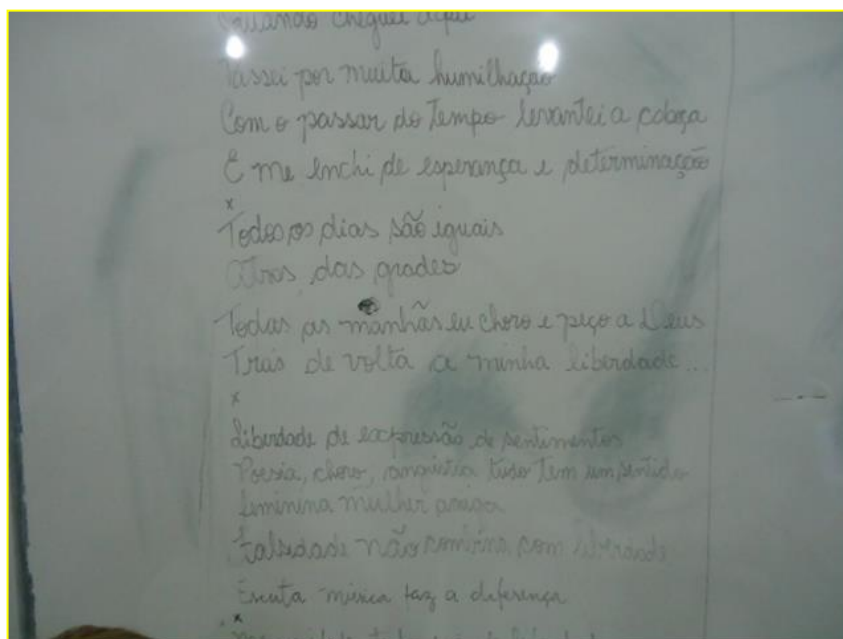 Quando cheguei aqui
Passei por muita humilhação
Com o passar do tempo levantei a cabeça
E me enchi de esperança e determinação
x
Todos os dias são iguais
Atras das grades
Todas as manhãs eu choro e peço a Deus
Trás de volta a minha liberdade...
x
Liberdade de expressão, de sentimentos
Poesia, choro, angústia tudo tem um sentido
feminina mulher amiga
Falsidade não combina com liberdade
Escuta música faz a diferença
x